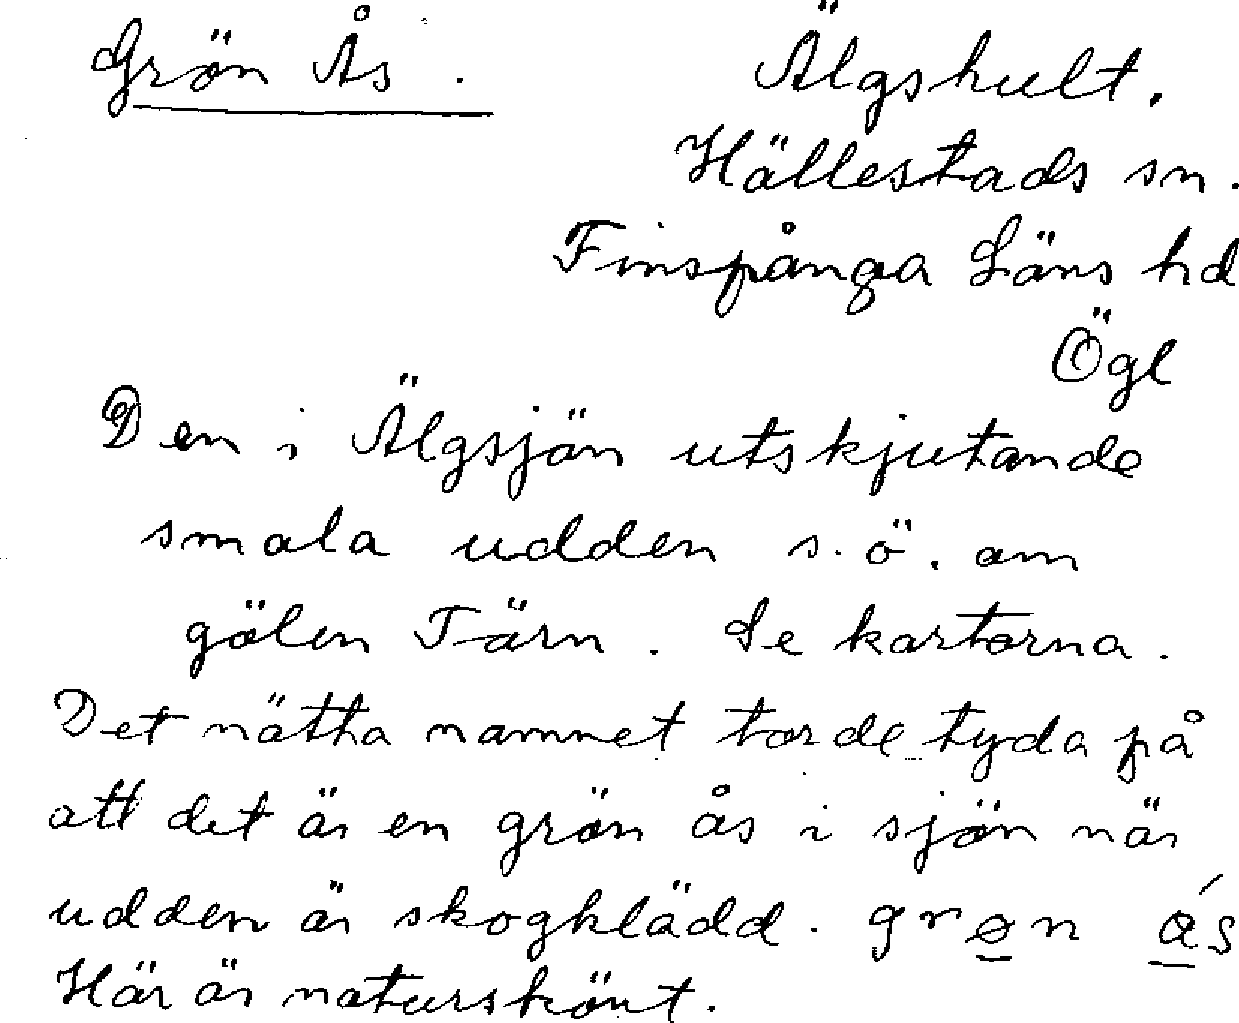 Grön Ås. Älgshult.
Hällestads sn.
Finspånga Läns hd
Ögl
Den i Älgsjön utskjutande
smala udden s.ö. om
gölen Tärn. Se kartorna.
Det nätta namnet torde tyda på
att det är en grön ås i sjön när
udden är skogklädd. grøn ås
Här är naturskönt.